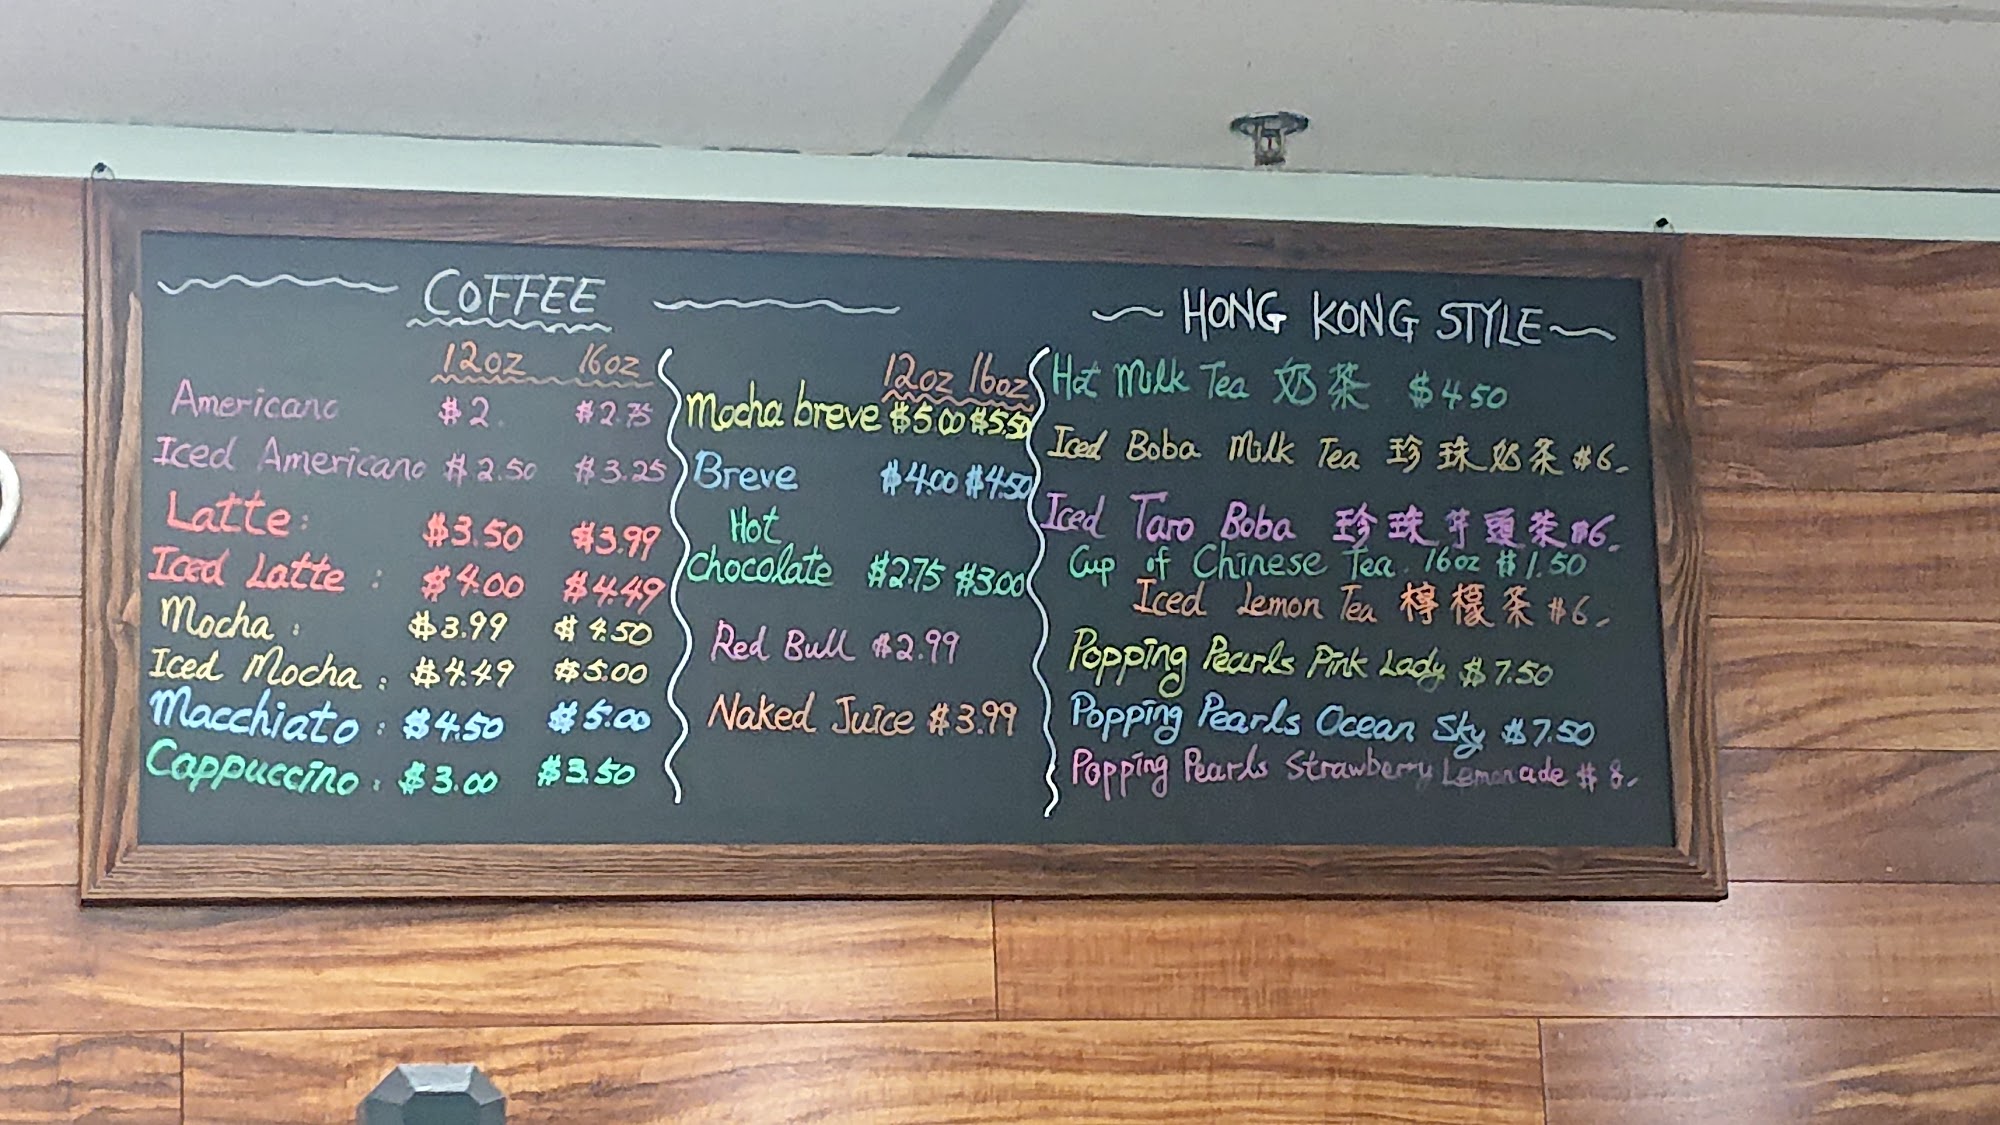 COFFEE
12oz 16oz
Americano $2. $2.75
Iced Americano $2.50 $3.25
Latte: $3.50 $3.99
Iced Latte : $4.00 $4.49
Mocha : $3.99 $4.50
Iced Mocha : $4.49 $5.00
Macchiato : $4.50 $5.00
Cappuccino : $3.00 $3.50
12oz 16oz
Mocha breve $5.00 $5.50
Breve $4.00 $4.50
Hot
Chocolate $2.75 $3.00
Red Bull $2.99
Naked Juice $3.99
HONG KONG STYLE
Hot Milk Tea 奶茶 $4.50
Iced Boba Milk Tea 珍珠奶茶 $6.
Iced Taro Boba 珍珠芋頭茶 $6.
Cup of Chinese Tea. 16oz $1.50
Iced Lemon Tea 檸檬茶 $6.
Popping Pearls Pink Lady $7.50
Popping Pearls Ocean Sky $7.50
Popping Pearls Strawberry Lemonade $8.